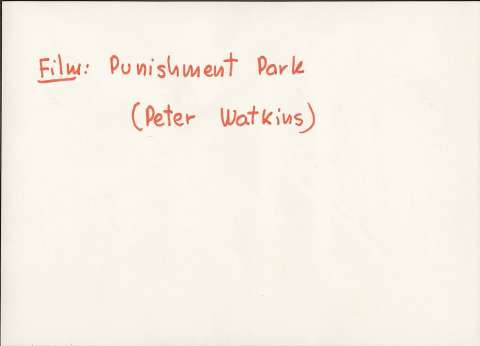 Film: Punishment Park
(Peter Watkins)